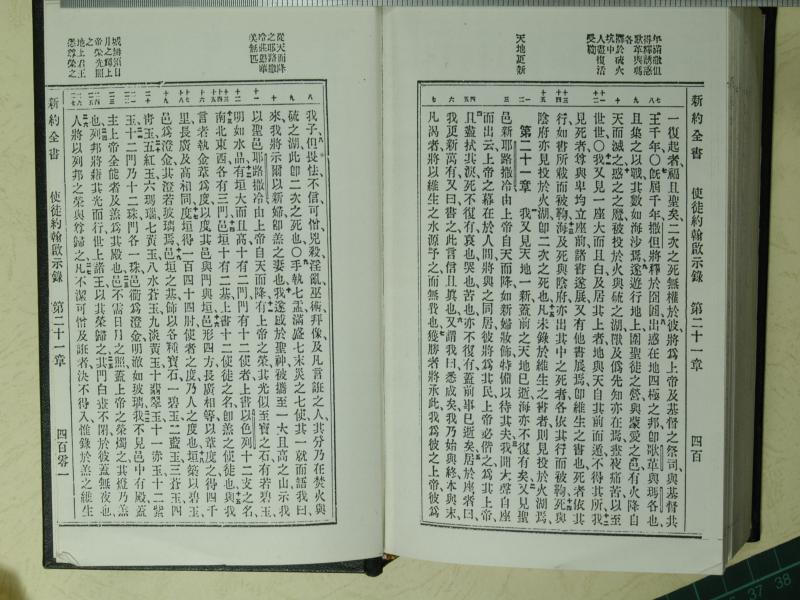 年滿撒但
得釋誘惑
歌革與瑪
各
魔於硫火
坑中
人盡復活
受鞫
天地更新
新約全書 使徒約翰啟示錄 第二十一章 四百
一復起者福且聖矣、二次之死無權於彼、將爲上帝及基督之祭司、與基督共
王千年、〇旣屆千年、撒但將釋於囹圄、出惑在地四極之邦、卽歌革與瑪各也、
且集之以戰、其數如海沙焉、遂遊行地上、圍聖徒之營、與蒙愛之邑、有火降自
天而滅之、惑之之魔被投於火與硫之湖、獸及僞先知亦在焉、晝夜痛苦、以至
世世、〇我又見一座、大而且白、及居其上者、地與天自其前而遁、不得其所、我
見死者尊與卑均立座前、諸書遂展、又有他書展焉、卽維生之書也、死者依其
行、如書所載而被鞫、海及死與陰府、亦出其中之死者、各依其行而被鞫、死與
陰府亦見投於火湖、卽二次之死也、凡未錄於維生之書者、則見投於火湖焉、
第二十一章 我又見天地一新、蓋前之天地已逝、海亦不復有矣、又見聖
邑新耶路撒冷、由上帝自天而降、如新婦妝飾特備、以待其夫、我聞大聲自座
而出云、上帝之幕在於人間、將與之同居、彼將爲其民、上帝必偕之、爲其上帝、
且盡拭其淚、死不復有、哀也哭也苦也、亦不復有、蓋前事已逝矣、居於座者曰、
我更新萬有、又曰、書之、此言信且真也、又謂我曰、悉成矣、我乃始與終、本與末、
凡渴者、將以維生之水源予之、而無費也、獲勝者將承此、我爲彼之上帝、彼爲
從天而降
之耶路撒
冷莊嚴華
美無匹
城無須日
月之輝上
帝榮光照
之
地上君王
悉尊榮之
我子、但畏怯不信、可憎兇殺、淫亂巫術、拜像、及凡言誑之人、其分乃在焚火與
硫之湖、此卽二次之死也、〇手執七盂滿盛七末災之七使、其一就而語我曰、
來、我將示爾以新婦、卽羔之妻也、我遂感於聖神、被攜至一大且高之山、示我
以聖邑耶路撒冷、由上帝自天而降、有上帝之榮、其光似至寶之石、有若碧玉、
明如水晶、有垣大而且高、十有二門、門有十二使者、上書以色列十二支之名、
南北東西各有三門、邑垣十有二基、上書十二使徒之名、卽羔之使徒也、與我
言者執金葦爲度、以度其邑與門與垣、邑形四方、長廣相等、以葦度之、得四千
里、長廣及高相同、度垣得一百四十四肘、使者之度乃人之度也、垣築以碧玉、
邑爲澄金、其澄若玻璃焉、邑垣之基、飾以各種寶石、一碧玉、二藍玉、三蒼玉、四
靑玉、五紅玉、六瑪瑙、七黃玉、八水蒼玉、九淡黃玉、十翡翠玉、十一赤玉、十二紫
玉、十二門乃十二珠、門各一珠、邑衢爲澄金、明澈如玻璃、我不見邑中有殿、蓋
主上帝全能者及羔、爲其殿也、邑不需日月之照、蓋上帝之榮燭之、其燈乃羔
也、列邦將藉其光而行、世上諸王以其榮歸之、其門白晝不閉、於彼蓋無夜也、
人將以列邦之榮與尊歸之、凡不潔可憎及誑者、決不得入、惟錄於羔之維生
新約全書 使徒約翰啟示錄 第二十一章 四百零一
37 38